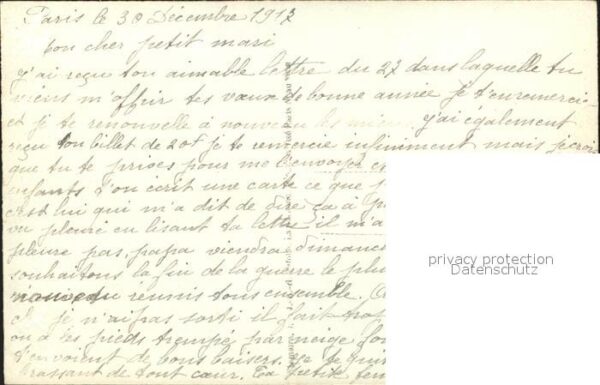 Paris le 30 Décembre 1917
Mon cher petit mari
j'ai reçu ton aimable lettre du 27 dans laquelle tu
viens m'offrir tes vœux de bonne année je t'en remercie
et je te renouvelle à nouveau les miens j'ai également
reçu ton billet de 20f je te remercie infiniment mais je crois
que tu te prives pour me l'envoyer et
enfants t'on écrit une carte ce que
c'est lui qui m'a dit de dire ça à
vu pleuré en lisant ta lettre il m'a
pleure pas, papa viendra dimanc
souhaitons la fin de la guerre le plu
nouveau réunis tous ensemble.
je n'ai pas sorti il fait trop
on a les pieds trempe par neige
t'envoient de bons baisers. je te
brassant de tout cœur. Ta petite fem
privacy protection
Datenschutz